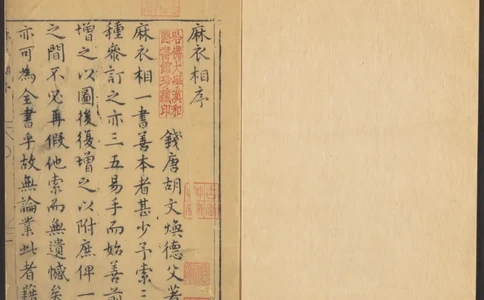 麻衣相序
錢唐胡文煥德父著
麻衣相一書善本者甚少予索三
種參訂之亦三五易手而始善前
增之以圖後復增之以附庶俾一
之間不必再假他索而無遺憾矣
亦可為全書乎故無論業此者藉
哈佛大學漢和
圖書館珍藏印